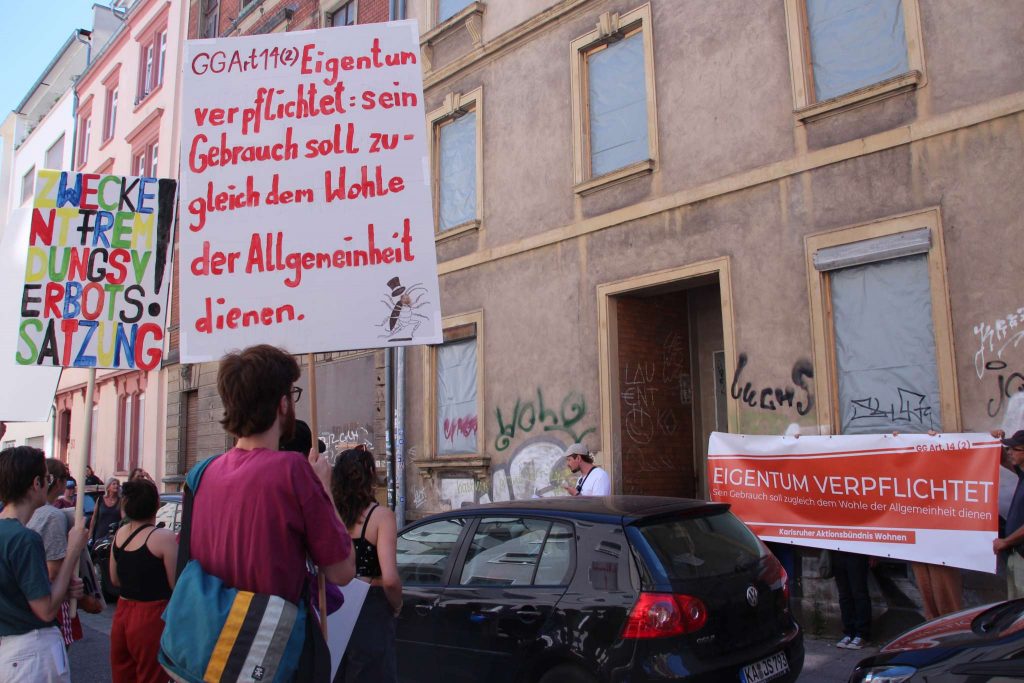 GG Art 14 (2) Eigentum
verpflichtet: sein
Gebrauch soll zu-
gleich dem Wohle
der Allgemeinheit
dienen.
ZWECKE
NTFREM
DUNGSV
ERBOTS!
SATZUNG
GG Art. 14 (2)
EIGENTUM VERPFLICHTET
Sein Gebrauch soll zugleich dem Wohle der Allgemeinheit dienen
Karlsruher Aktionsbündnis Wohnen
LAU
ENT
KA JS 793